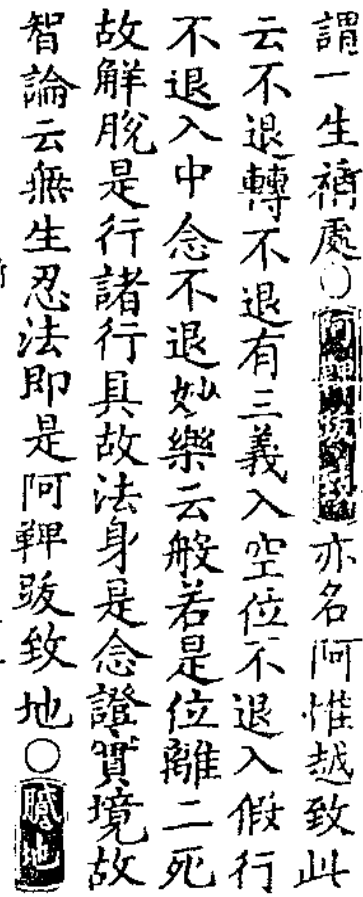 謂一生補處○阿鞞跋致亦名阿惟越致此
云不退轉不退有三義入空位不退入假行
不退入中念不退妙樂云般若是位離二死
故解脫是行諸行具故法身是念證實境故
智論云無生忍法即是阿鞞跋致地○